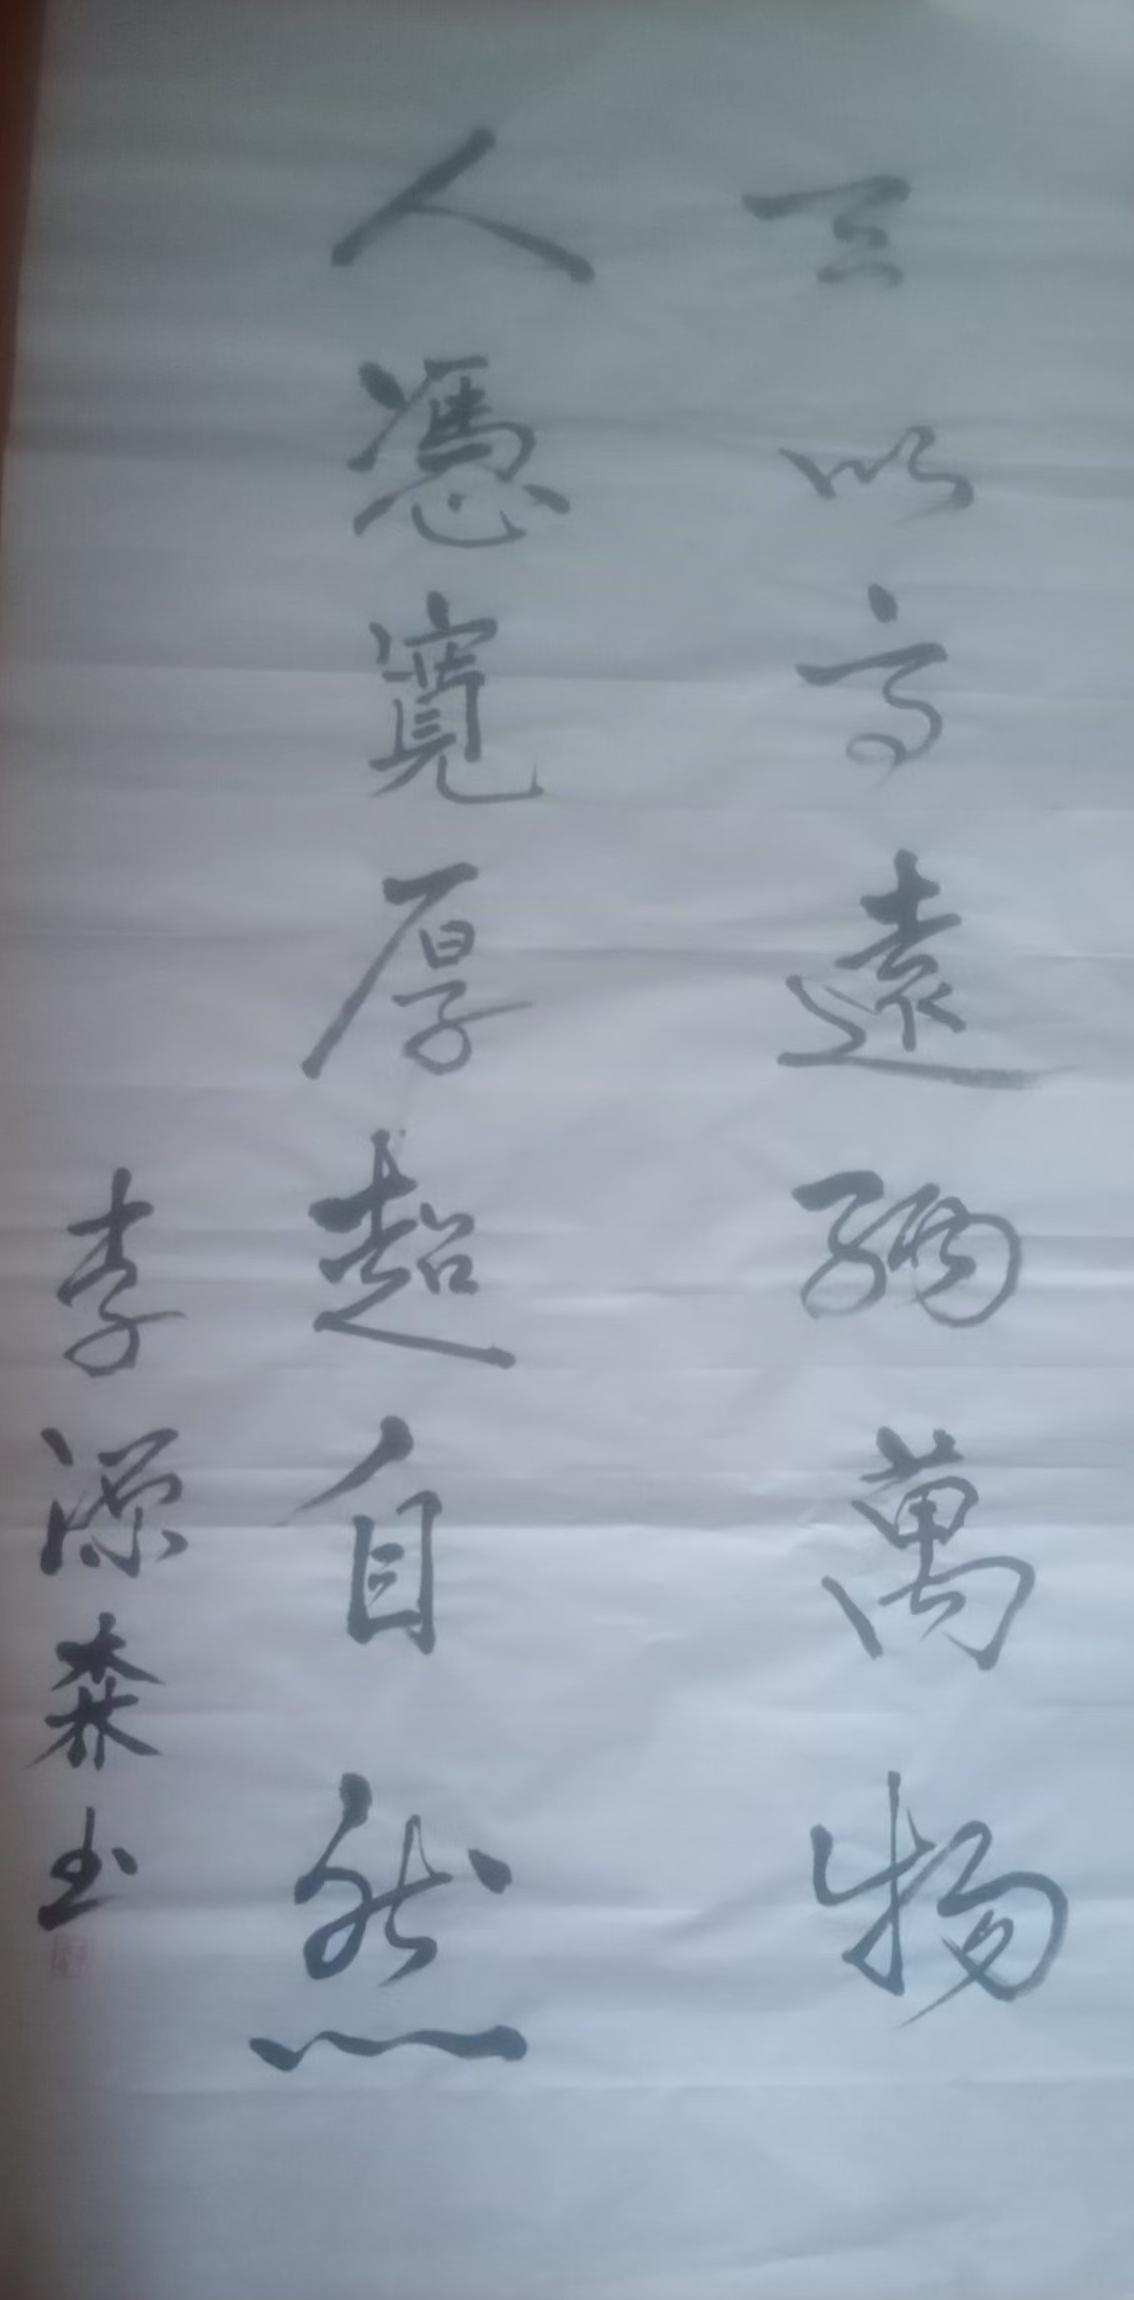 天以高遠彌萬物
人憑寬厚超自然
李源森书